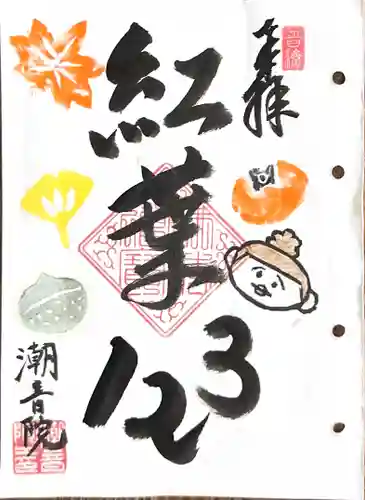 奉拝
紅葉
123
潮音院